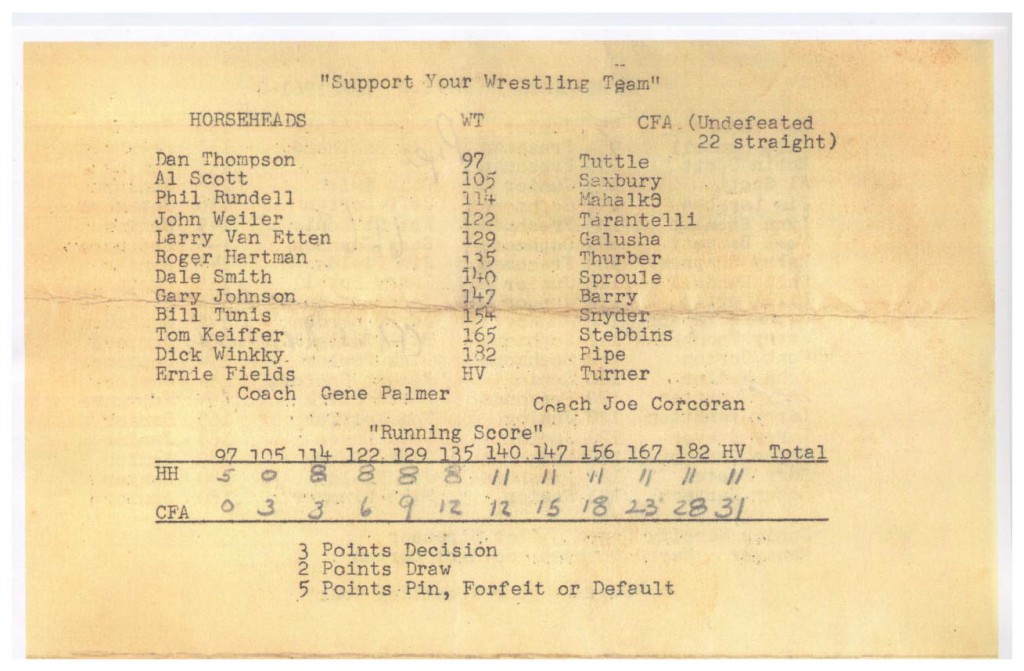 "Support Your Wrestling Team"
HORSEHEADS WT CFA (Undefeated
22 straight)
Dan Thompson 97 Tuttle
Al Scott 105 Saxbury
Phil Rundell 114 Mahalko
John Weiler 122 Tarantelli
Larry Van Etten 129 Galusha
Roger Hartman 135 Thurber
Dale Smith 140 Sproule
Gary Johnson 147 Barry
Bill Tunis 154 Snyder
Tom Keiffer 165 Stebbins
Dick Winkky 182 Pipe
Ernie Fields HV Turner
Coach Gene Palmer Coach Joe Corcoran
"Running Score"
97 105 114 122 129 135 140 147 156 167 182 HV Total
HH 5 0 8 8 8 8 11 11 11 11 11 11
CFA 0 3 3 6 9 12 12 15 18 23 28 31
3 Points Decision
2 Points Draw
5 Points Pin, Forfeit or Default